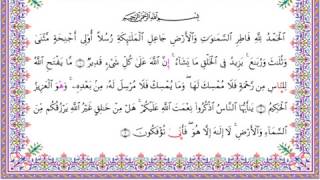 بِسْمِ ٱللَّهِ ٱلرَّحْمَٰنِ ٱلرَّحِيمِ
ٱلْحَمْدُ لِلَّهِ فَاطِرِ ٱلسَّمَٰوَٰتِ وَٱلْأَرْضِ جَاعِلِ ٱلْمَلَٰٓئِكَةِ رُسُلًا أُو۟لِىٓ أَجْنِحَةٍ مَّثْنَىٰ
وَثُلَٰثَ وَرُبَٰعَ ۚ يَزِيدُ فِى ٱلْخَلْقِ مَا يَشَآءُ ۚ إِنَّ ٱللَّهَ عَلَىٰ كُلِّ شَىْءٍ قَدِيرٌ ١ مَّا يَفْتَحِ ٱللَّهُ
لِلنَّاسِ مِن رَّحْمَةٍ فَلَا مُمْسِكَ لَهَا ۖ وَمَا يُمْسِكْ فَلَا مُرْسِلَ لَهُۥ مِنۢ بَعْدِهِۦ ۚ وَهُوَ ٱلْعَزِيزُ
ٱلْحَكِيمُ ٢ يَٰٓأَيُّهَا ٱلنَّاسُ ٱذْكُرُوا۟ نِعْمَتَ ٱللَّهِ عَلَيْكُمْ ۚ هَلْ مِنْ خَٰلِقٍ غَيْرُ ٱللَّهِ يَرْزُقُكُم مِّنَ
ٱلسَّمَآءِ وَٱلْأَرْضِ ۚ لَآ إِلَٰهَ إِلَّا هُوَ ۖ فَأَنَّىٰ تُؤْفَكُونَ ٣